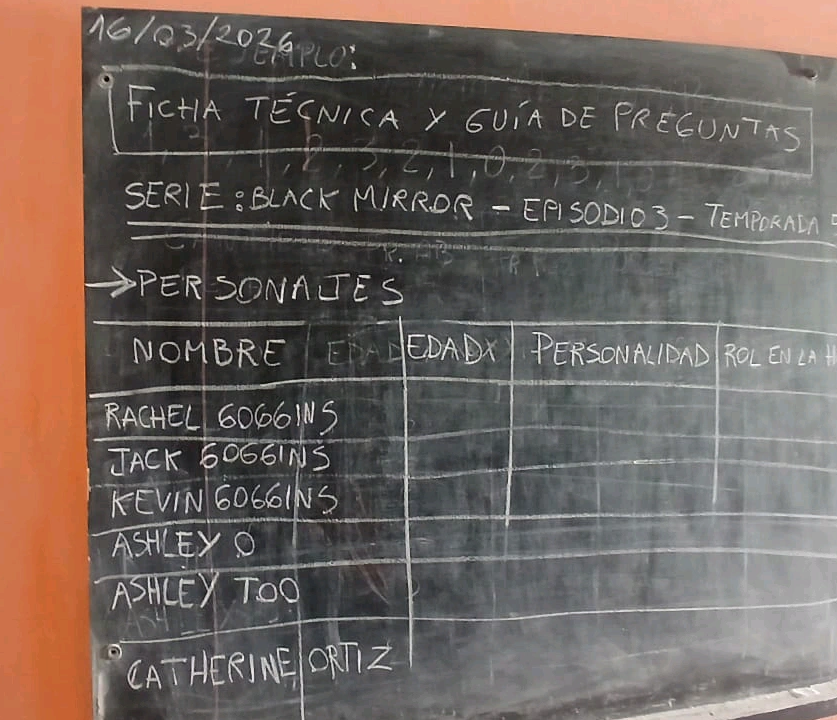 16/03/2026
EJEMPLO:
FICHA TÉCNICA Y GUÍA DE PREGUNTAS
1, 2, 3, 2, 1, 0, 2, 3, 1, 0
SERIE: BLACK MIRROR - EPISODIO 3 - TEMPORADA 5
→ PERSONAJES
NOMBRE EDAD EDADX PERSONALIDAD ROL EN LA H
RACHEL GOGGINS
JACK GOGGINS
KEVIN GOGGINS
ASHLEY O
ASHLEY TOO
CATHERINE ORTIZ